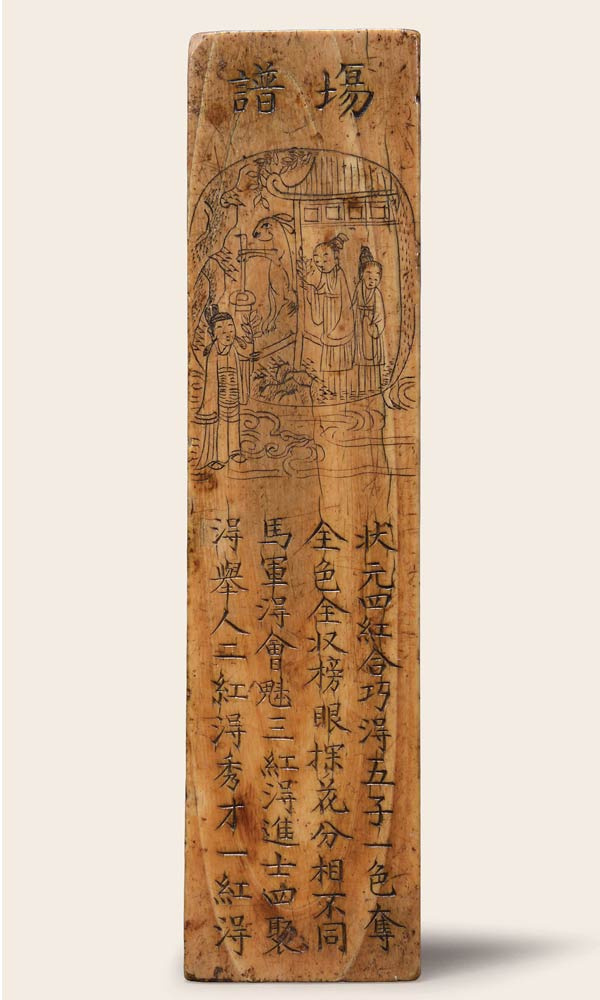 塲譜
状元四紅合巧淂五子一色奪
全色全収榜眼探花分相不同
馬軍淂會魁三紅淂進士四聚
淂舉人二紅淂秀才一紅淂